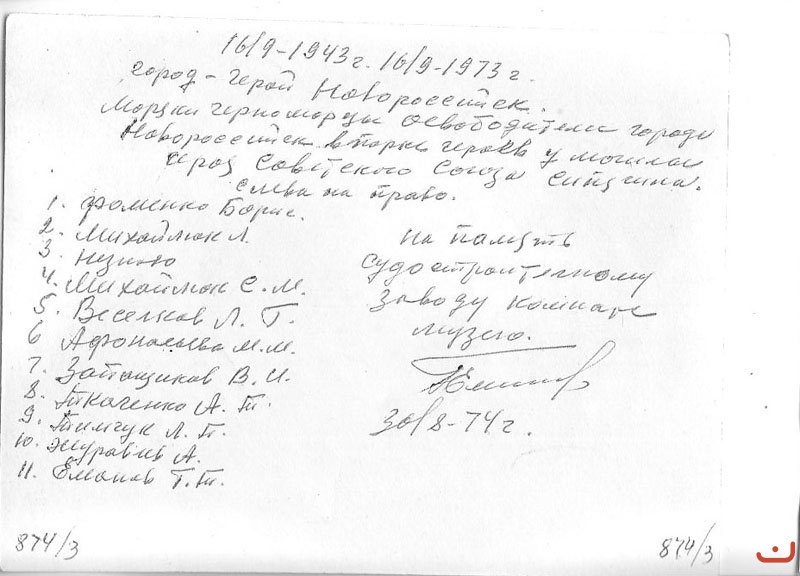 16/9-1943г. 16/9-1973г.
город-герой Новоросейск.
Моряки черноморцы освободители города
Новоросейск в парке героев у могилы
героя Советского Союза Сипягина.
слева на право.
1. Фоменко Борис.
2. Михайлюк Л.
3.
4. Михайлюк С. М.
5. Веселков Л. Г.
6 Афонасьева М. М.
7. Запащиков В. И.
8. Ткаченко А. Т.
9. Тимчук Л. Т.
10. Журавлев А.
11. Еманов Г. Т.
на память
судостроительному
заводу комнате
музею.
30/8-74г.
874/3
874/3